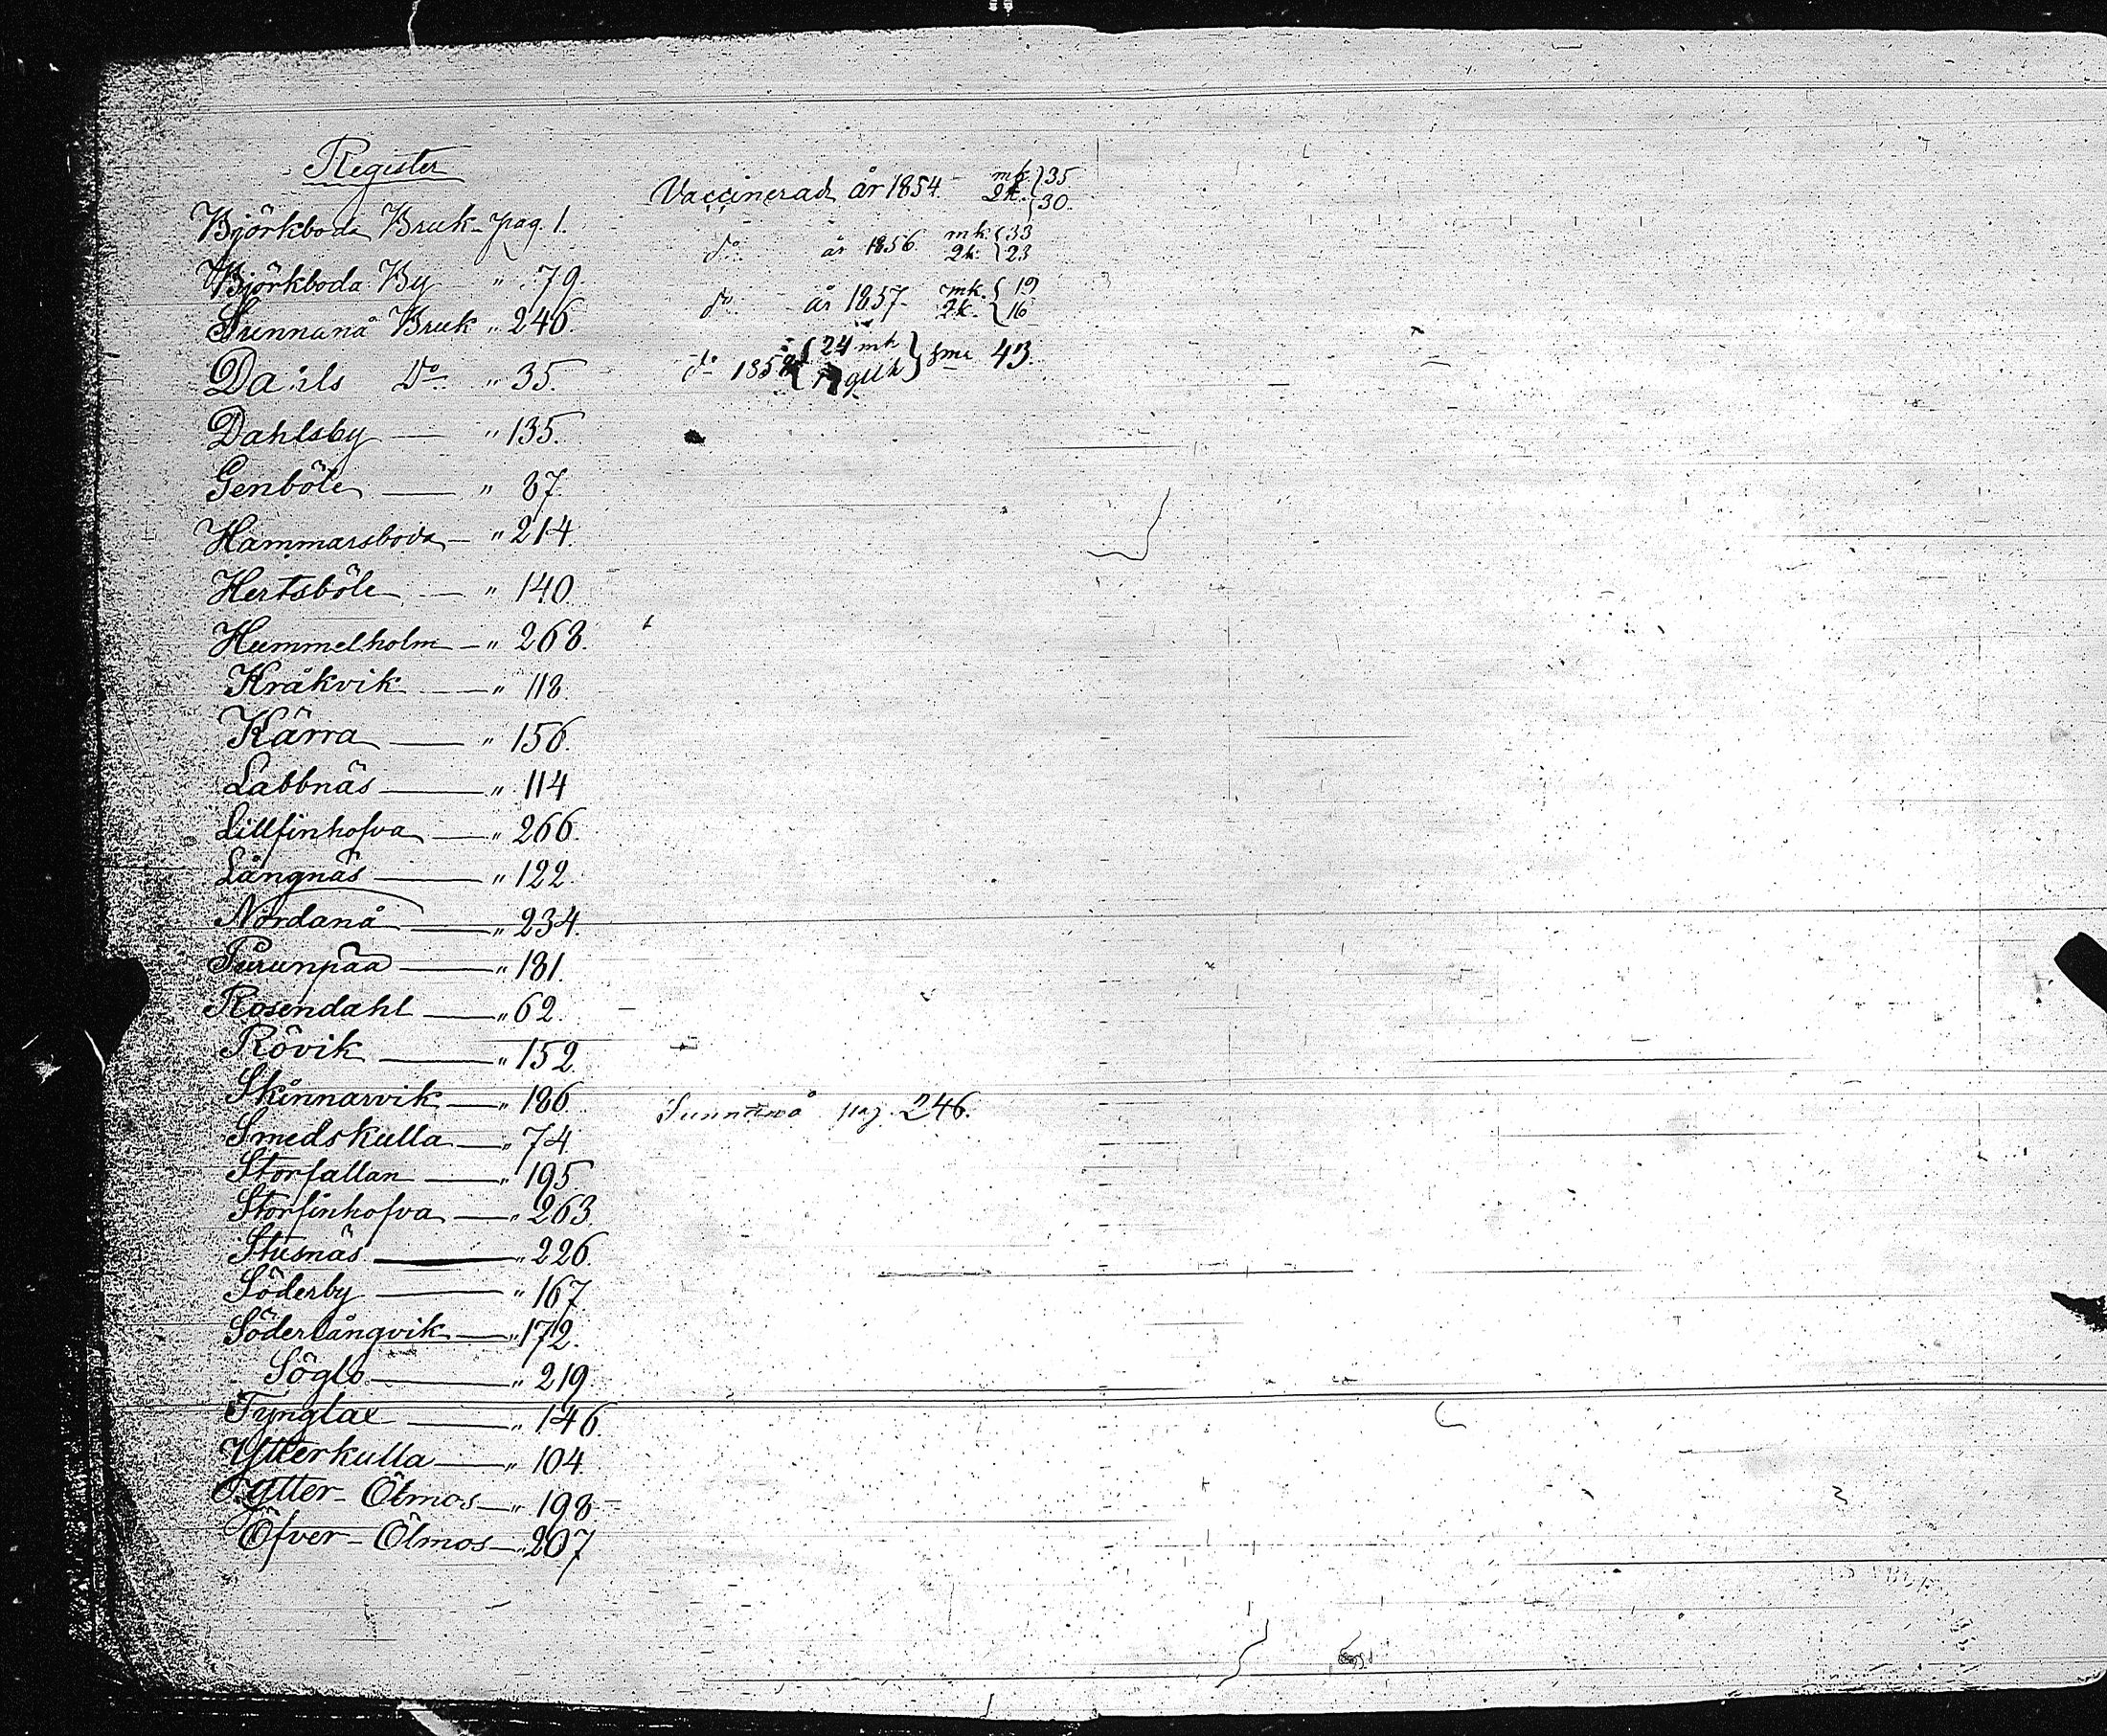 Register
Björkboda Bruk - pag. 1.
Björkboda By " 79
Sunnanå Bruk " 246.
Dahls Do " 35.
Dahlsby — " 135.
Genböle — " 87.
Hammarsboda — " 214.
Hertsböle — " 140.
Hummelholm — " 268.
Kråkvik — " 118.
Kärra — " 156.
Labbnäs — " 114
Lillfinhofva — " 266.
Långnäs — " 122.
Nordanå — " 234.
Purunpää — " 181.
Rosendahl — " 62.
Rövik — " 152.
Skinnarvik — " 186
Smedskulla — " 74
Storfallan — " 195.
Storfinhofva — " 263.
Stusnäs — " 226.
Söderby — " 167
Söderlångvik — " 172.
Söglo — " 219
Tynglax — " 146
Ytterkulla — " 104.
Ytter - Ölmos — " 198
Öfver - Ölmos — " 207
Vaccinerad år 1854 mk. } 35
qk. } 30.
do år 1856 mk. { 33
qk. } 23
do år 1857 mk. { 19
qk. { 16
do 1858 { 24 mk } sma 43.
19 qvk
Sunnanå pag. 246.